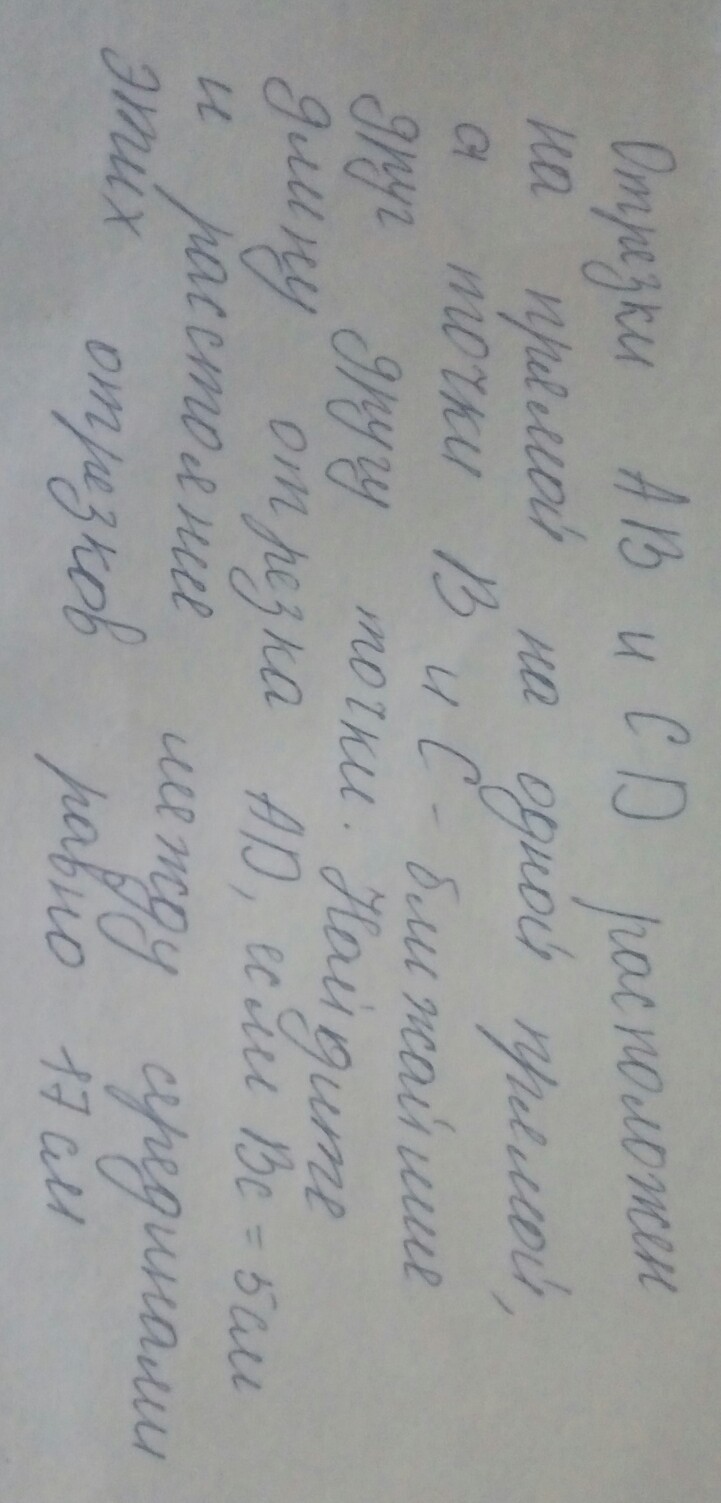 Отрезки АВ и СD расположен
на прямой на одной прямой,
а точки В и С - ближайшие
друг другу точки. Найдите
длину отрезка АD, если Вс = 5см
и расстояние между серединами
этих отрезков равно 17 см